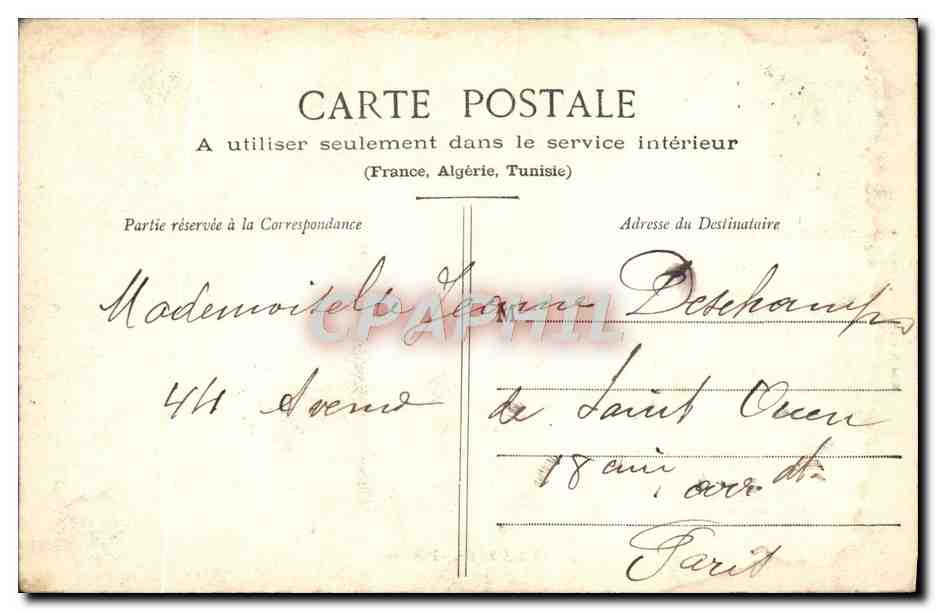 CARTE POSTALE
A utiliser seulement dans le service intérieur
(France, Algérie, Tunisie)
Partie réservée à la Correspondance
Adresse du Destinataire
Mademoiselle Jeanne Deschamps
M
CPAPHIL
44 Avenue de Saint Ouen
18 eme arrdt
Paris